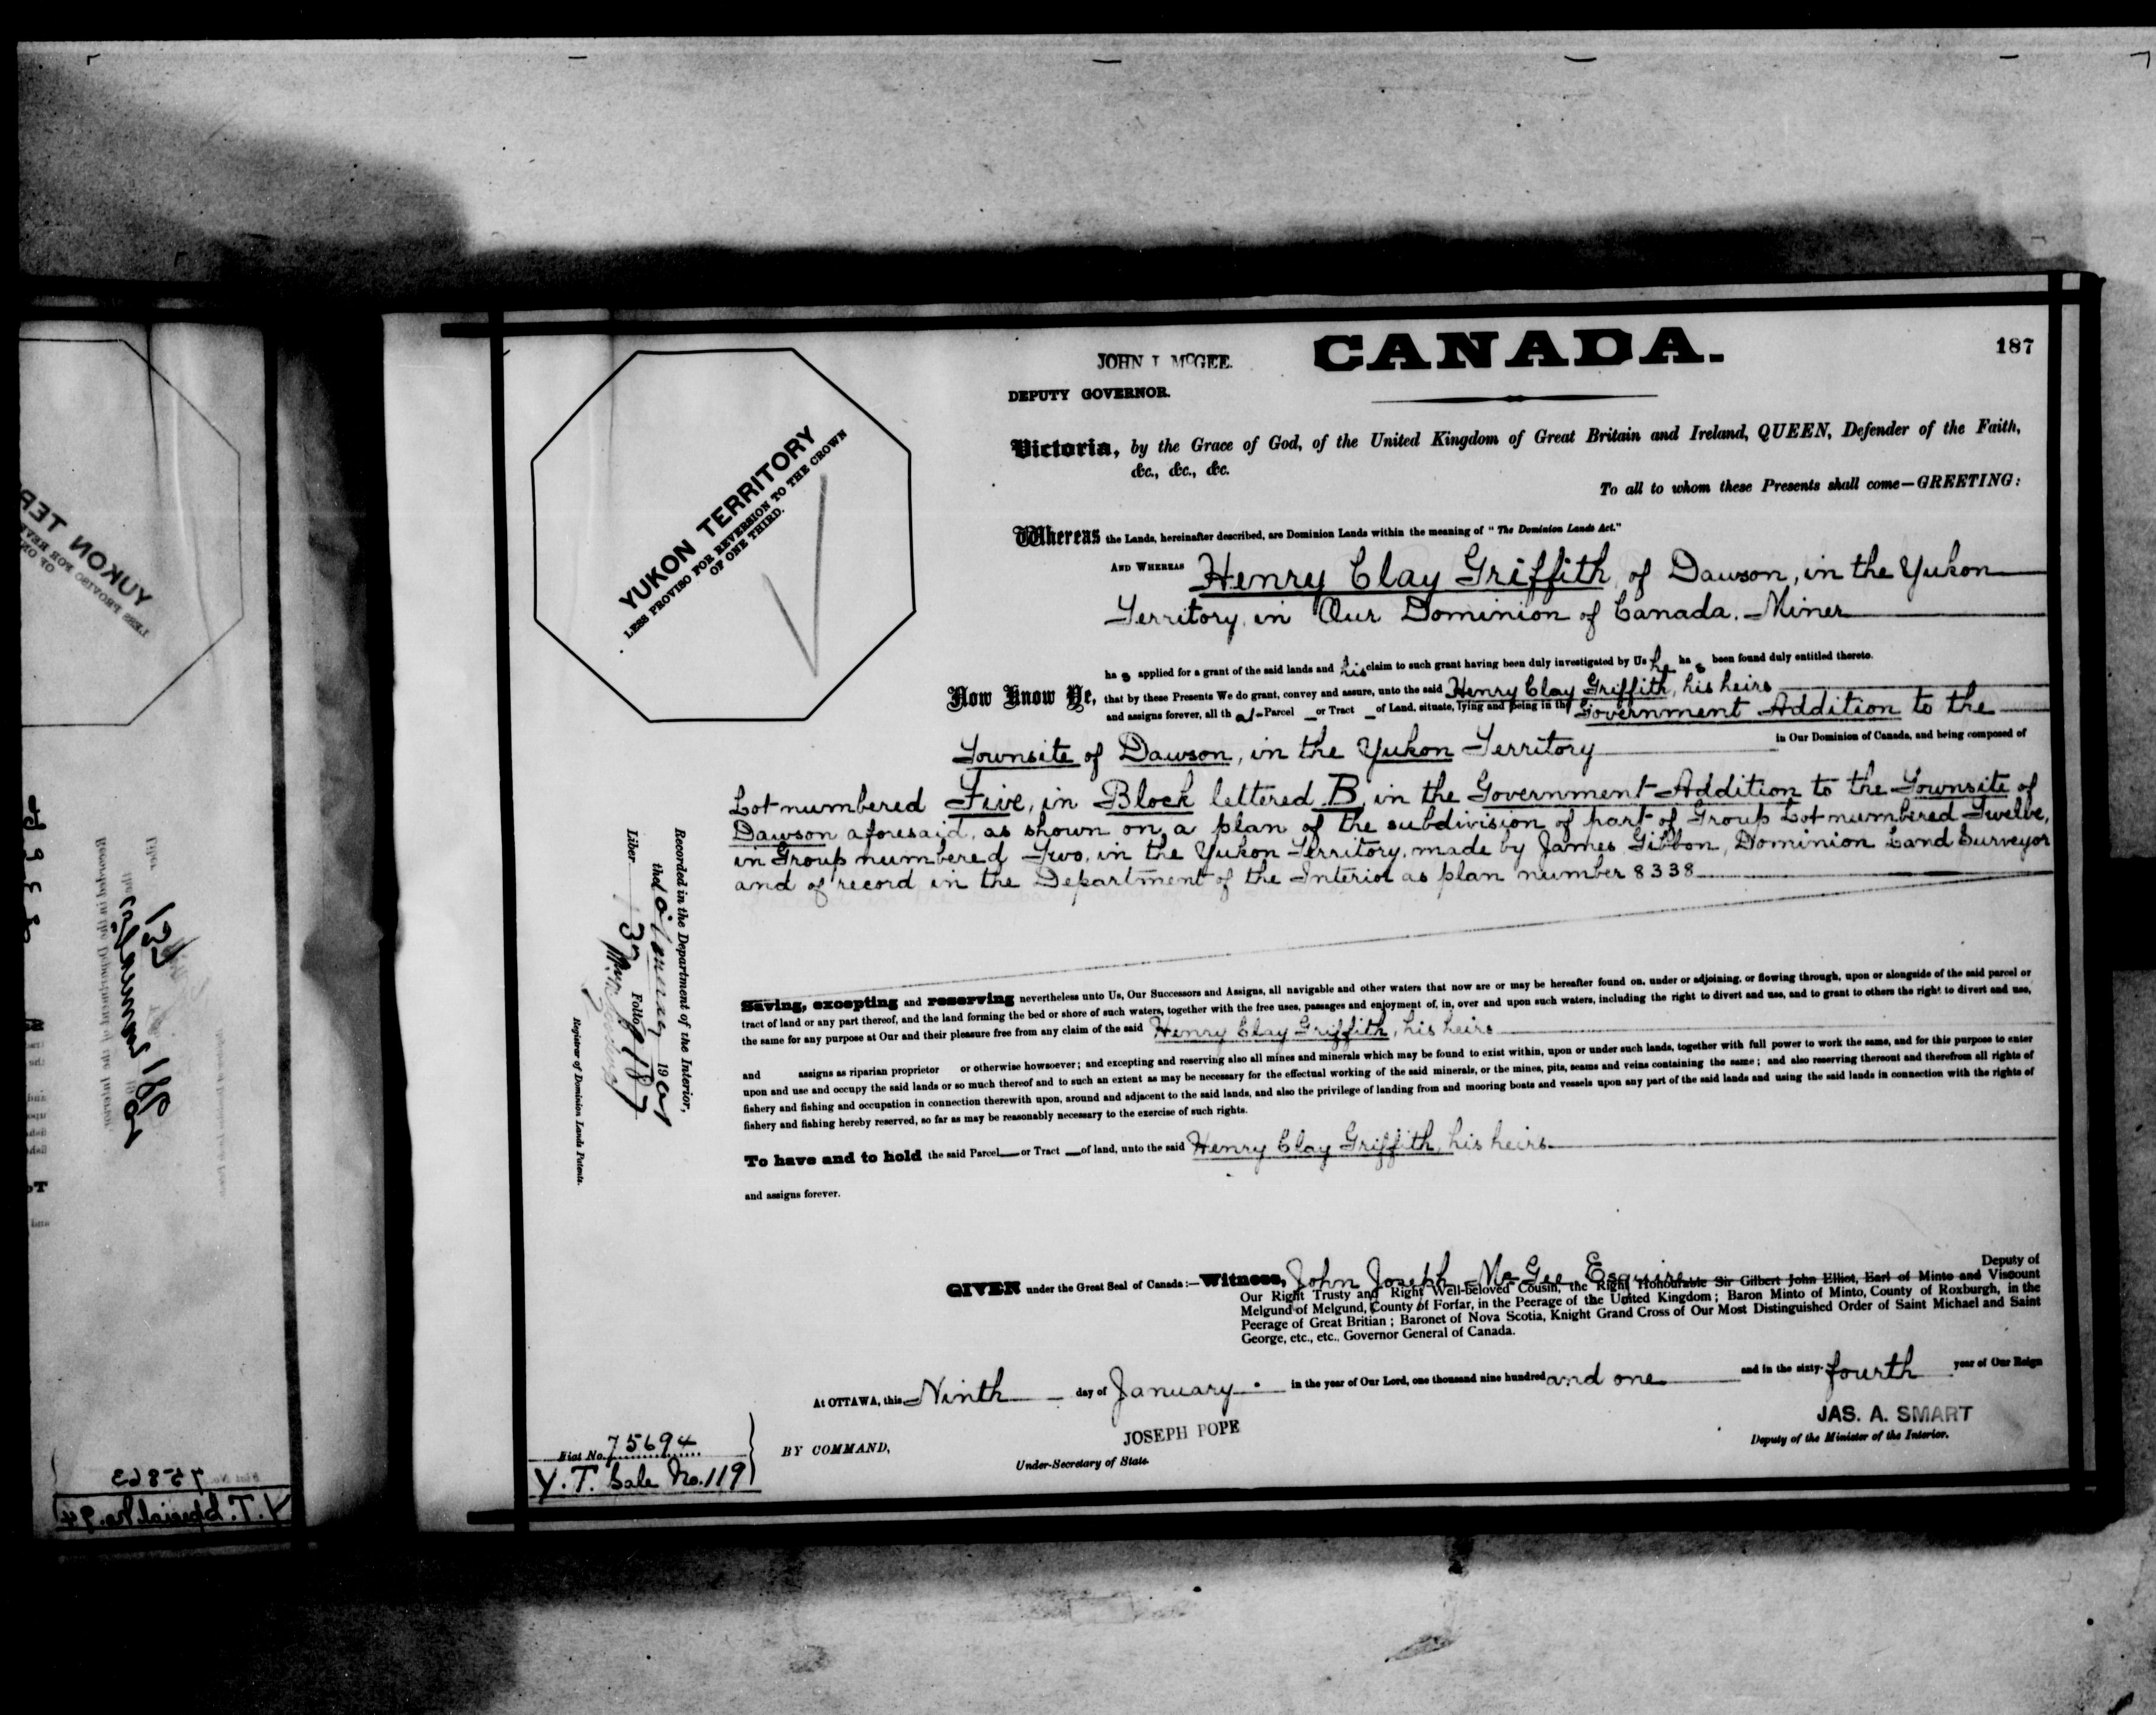 CANADA.
187
JOHN J McGEE.
DEPUTY GOVERNOR.
YUKON TERRITORY
LESS PROVISO FOR REVERSION TO THE CROWN
OF ONE THIRD.
Victoria, by the Grace of God, of the United Kingdom of Great Britain and Ireland, QUEEN, Defender of the Faith,
&c., &c., &c.
To all to whom these Presents shall come—GREETING:
Whereas the Lands, hereinafter described, are Dominion Lands within the meaning of "The Dominion Lands Act."
AND WHEREAS Henry Clay Griffith, of Dawson, in the Yukon
Territory, in Our Dominion of Canada. Miner
has applied for a grant of the said lands and his claim to such grant having been duly investigated by Us he has been found duly entitled thereto.
Now Know Ye, that by these Presents We do grant, convey and assure, unto the said Henry Clay Griffith, his heirs
and assigns forever, all that Parcel or Tract of Land, situate, lying and being in the Government Addition to the
Townsite of Dawson, in the Yukon Territory in Our Dominion of Canada, and being composed of
Lot numbered Five, in Block lettered B, in the Government Addition to the Townsite of
Dawson aforesaid, as shown on a plan of the subdivision of part of Group Lot numbered Twelve,
in Group numbered Two, in the Yukon Territory, made by James Gibbon, Dominion Land Surveyor
and of record in the Department of the Interior as plan number 8338
Recorded in the Department of the Interior,
the 10 January 1901
Liber 137 Folio 187
Registrar of Dominion Lands Patents.
Saving, excepting and reserving nevertheless unto Us, Our Successors and Assigns, all navigable and other waters that now are or may be hereafter found on, under or adjoining, or flowing through, upon or alongside of the said parcel or
tract of land or any part thereof, and the land forming the bed or shore of such waters, together with the free uses, passages and enjoyment of, in, over and upon such waters, including the right to divert and use, and to grant to others the right to divert and use,
the same for any purpose at Our and their pleasure free from any claim of the said Henry Clay Griffith, his heirs
and assigns as riparian proprietor or otherwise howsoever; and excepting and reserving also all mines and minerals which may be found to exist within, upon or under such lands, together with full power to work the same, and for this purpose to enter
upon and use and occupy the said lands or so much thereof and to such an extent as may be necessary for the effectual working of the said minerals, or the mines, pits, seams and veins containing the same; and also reserving thereout and therefrom all rights of
fishery and fishing and occupation in connection therewith upon, around and adjacent to the said lands, and also the privilege of landing from and mooring boats and vessels upon any part of the said lands and using the said lands in connection with the rights of
fishery and fishing hereby reserved, so far as may be reasonably necessary to the exercise of such rights.
To have and to hold the said Parcel or Tract of land, unto the said Henry Clay Griffith, his heirs
and assigns forever.
GIVEN under the Great Seal of Canada:—Witness, John Joseph McGee Esquire Deputy of
Our Right Trusty and Right Well-beloved Cousin, the Right Honourable Sir Gilbert John Elliot, Earl of Minto and Viscount
Melgund of Melgund, County of Forfar, in the Peerage of the United Kingdom; Baron Minto of Minto, County of Roxburgh, in the
Peerage of Great Britian; Baronet of Nova Scotia, Knight Grand Cross of Our Most Distinguished Order of Saint Michael and Saint
George, etc., etc., Governor General of Canada.
At OTTAWA, this Ninth day of January in the year of Our Lord, one thousand nine hundred and one and in the sixty-fourth year of Our Reign
JAS. A. SMART
Deputy of the Minister of the Interior.
BY COMMAND,
JOSEPH POPE
Under-Secretary of State.
Fiat No. 75694
Y.T. Sale No. 119